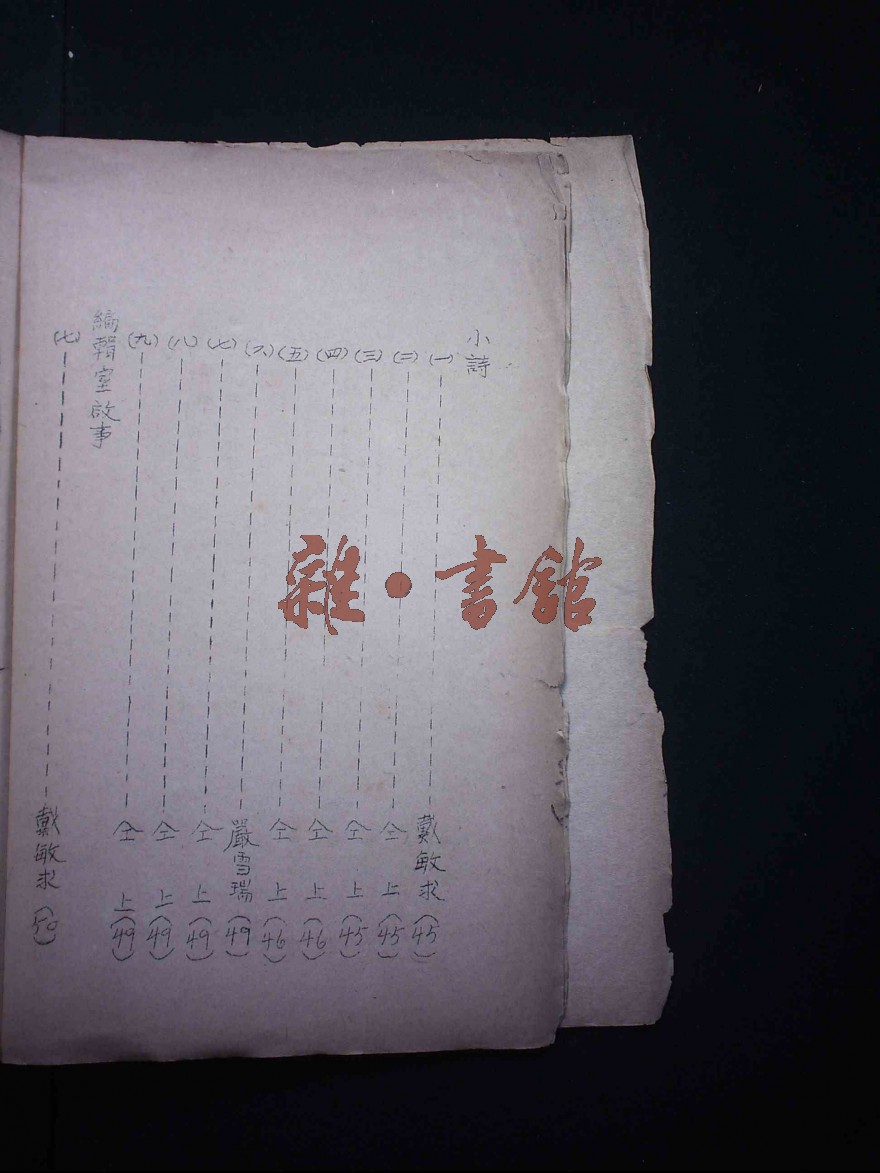 小詩
(一)戴敏求(45)
(二)仝上(45)
(三)仝上(45)
(四)仝上(46)
(五)仝上(46)
(六)嚴雪瑞(49)
(七)仝上(49)
(八)仝上(49)
(九)仝上(49)
編輯室啟事
(七)戴敏求(50)
雜·書館